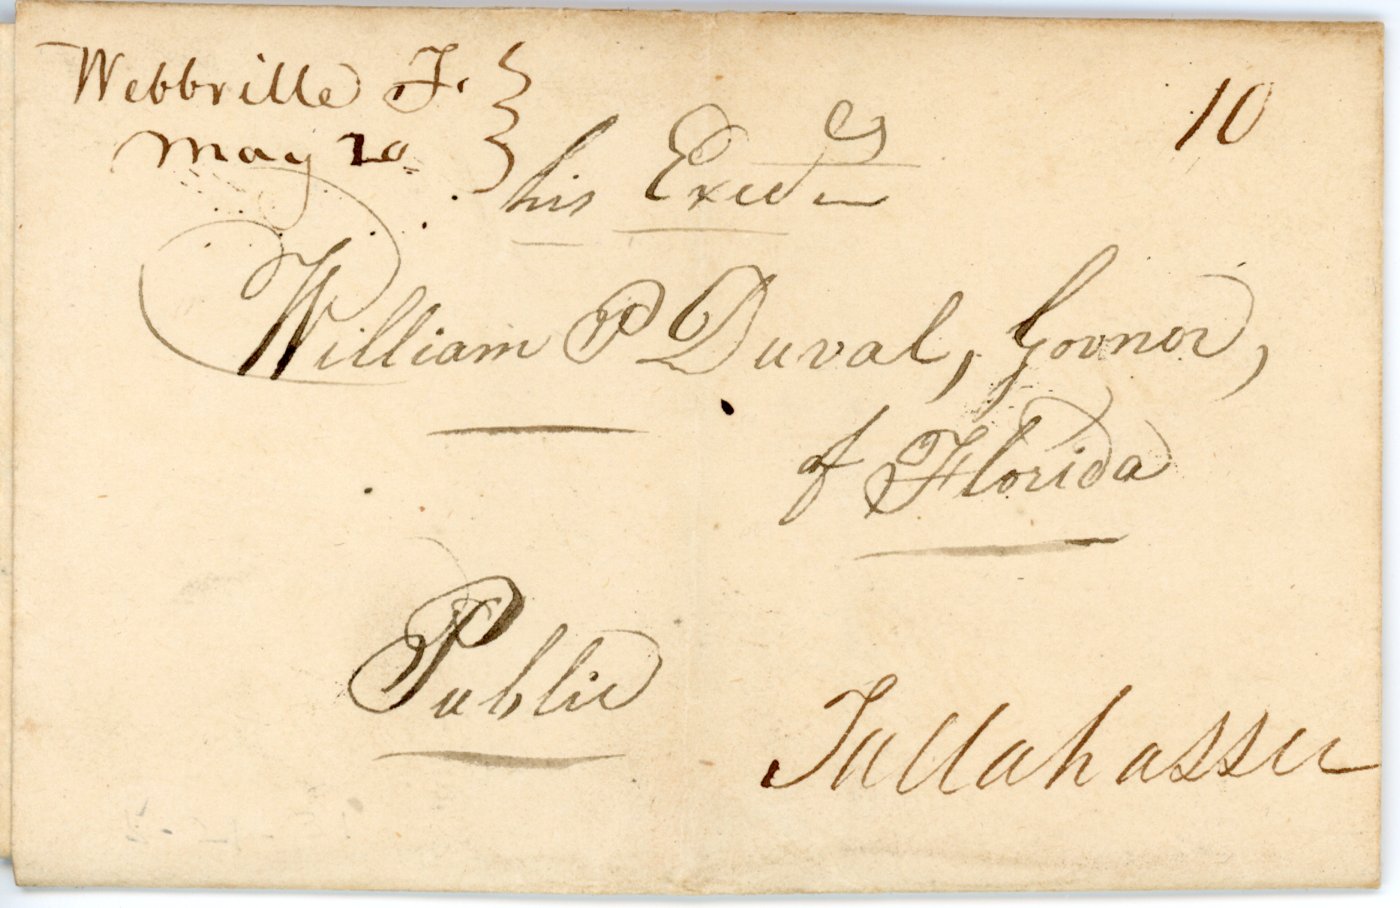 Webbville F.
May 20
10
his Excy
William P Duval, Govnor,
of Florida
Public
Tallahassee